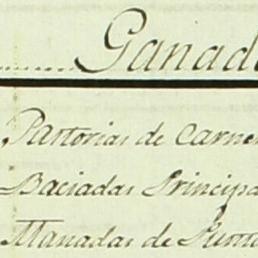 Ganad
Pastorias de Carne
Baciadas Principa
Manadas de